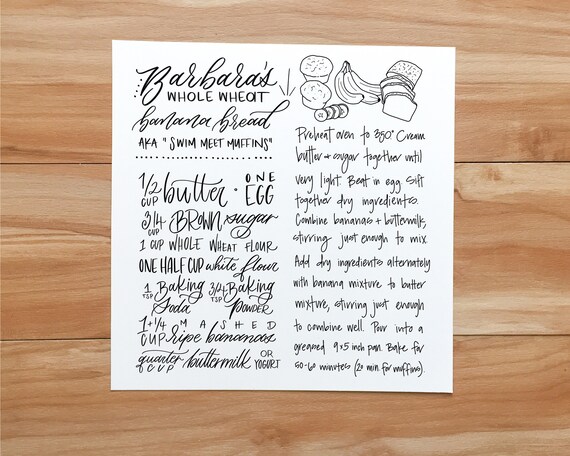 Barbara's
WHOLE WHEAT
banana bread
AKA "SWIM MEET MUFFINS"
1/2 CUP butter · ONE EGG
3/4 CUP BROWN sugar
1 CUP WHOLE WHEAT FLOUR
ONE HALF CUP white flour
1 TSP Baking Soda 3/4 TSP Baking POWDER
1 + 1/4 CUP MASHED ripe bananas
quarter of CUP buttermilk OR YOGURT
Preheat oven to 350° Cream
butter + sugar together until
very light. Beat in egg. Sift
together dry ingredients.
Combine bananas + buttermilk,
stirring just enough to mix.
Add dry ingredients alternately
with banana mixture to butter
mixture, stirring just enough
to combine well. Pour into a
greased 9x5 inch pan. Bake for
50-60 minutes (20 min for muffins).